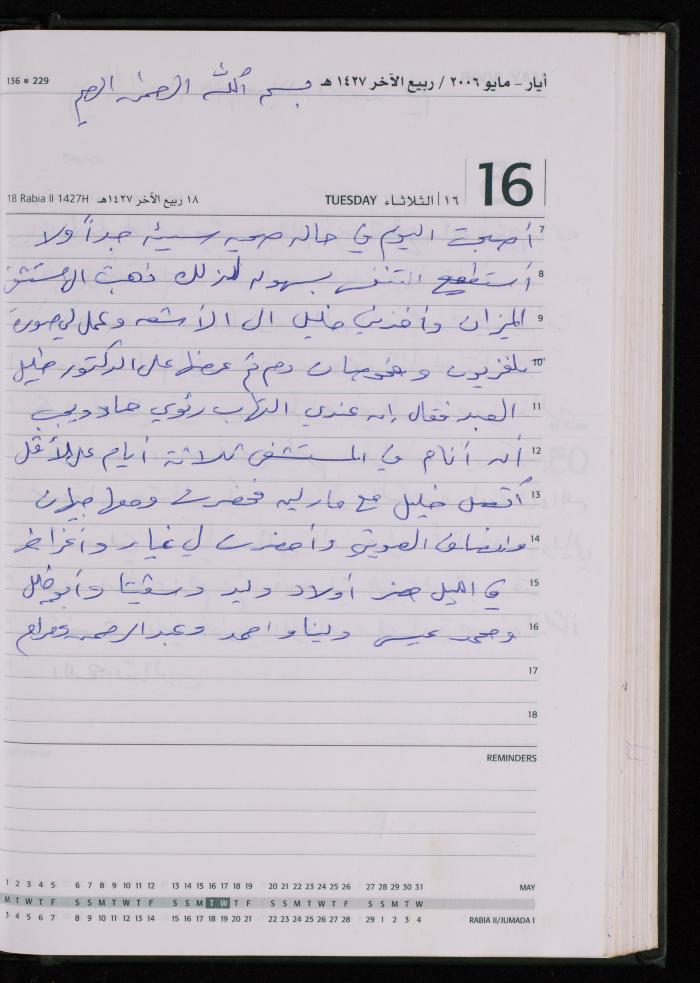 136 ■ 229
أيار - مايو ٢٠٠٦ / ربيع الآخر ١٤٢٧ هـ
بسم الله الرحمن الرحيم
16
18 Rabia II 1427H ١٨ ربيع الآخر ١٤٢٧هـ TUESDAY ١٦ الثلاثاء
7 أصبحت اليوم في حاله صحيه سيئه جداً ولا
8 أستطيع التنفس بسهوله لذلك ذهبت الى مستشفى
9 الميزان وأخذني خليل الى الأشعه وعمل لي صورة
10 تلفزيون وفحوصات دم ثم عرضها على الدكتور خليل
11 العبد فقال إنه عندي التهاب رئوي حاد ويجب
12 أن أنام في المستشفى ثلاثة أيام على الأقل
13 أتصل خليل مع فحضرت ومعها جيهان
14 وأحضرت لي غيار وأغراض
15 في الليل حضر أولاد وليد وأبو خليل
16 ومحمد عيسى ولينا واحمد وعبد الرحمن
17
18
REMINDERS
1 2 3 4 5 6 7 8 9 10 11 12 13 14 15 16 17 18 19 20 21 22 23 24 25 26 27 28 29 30 31 MAY
M T W T F S S M T W T F S S M T W T F S S M T W T F S S M T W
3 4 5 6 7 8 9 10 11 12 13 14 15 16 17 18 19 20 21 22 23 24 25 26 27 28 29 1 2 3 4 RABIA II/JUMADA I